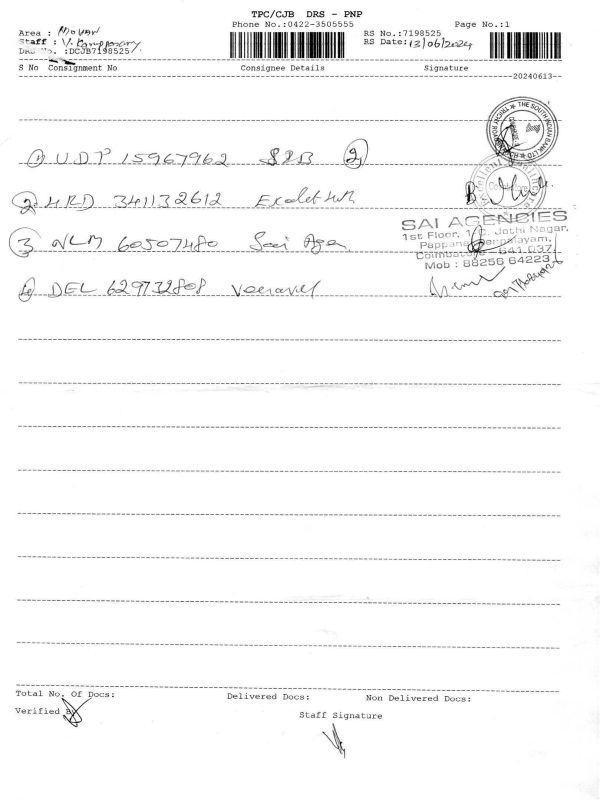 TPC/CJB DRS - PNP
Phone No.:0422-3505555
Page No.:1
Area :
Staff : V.
DRS No. :DCJB7198525
RS No.:7198525
RS Date:13/06/2024
S No Consignment No Consignee Details Signature
20240613
THE SOUTH INDIAN BANK LTD
1 U.D.P 15967962 SIB 2
2 HRD 341132612
3 NLM 60507480 Sai Agen
SAI AGENCIES
1st Floor, Jothi Nagar,
Coimbatore - 641 037.
Mob : 88256 64223
4 DEL 629732808
Total No. Of Docs: Delivered Docs: Non Delivered Docs:
Verified By
Staff Signature